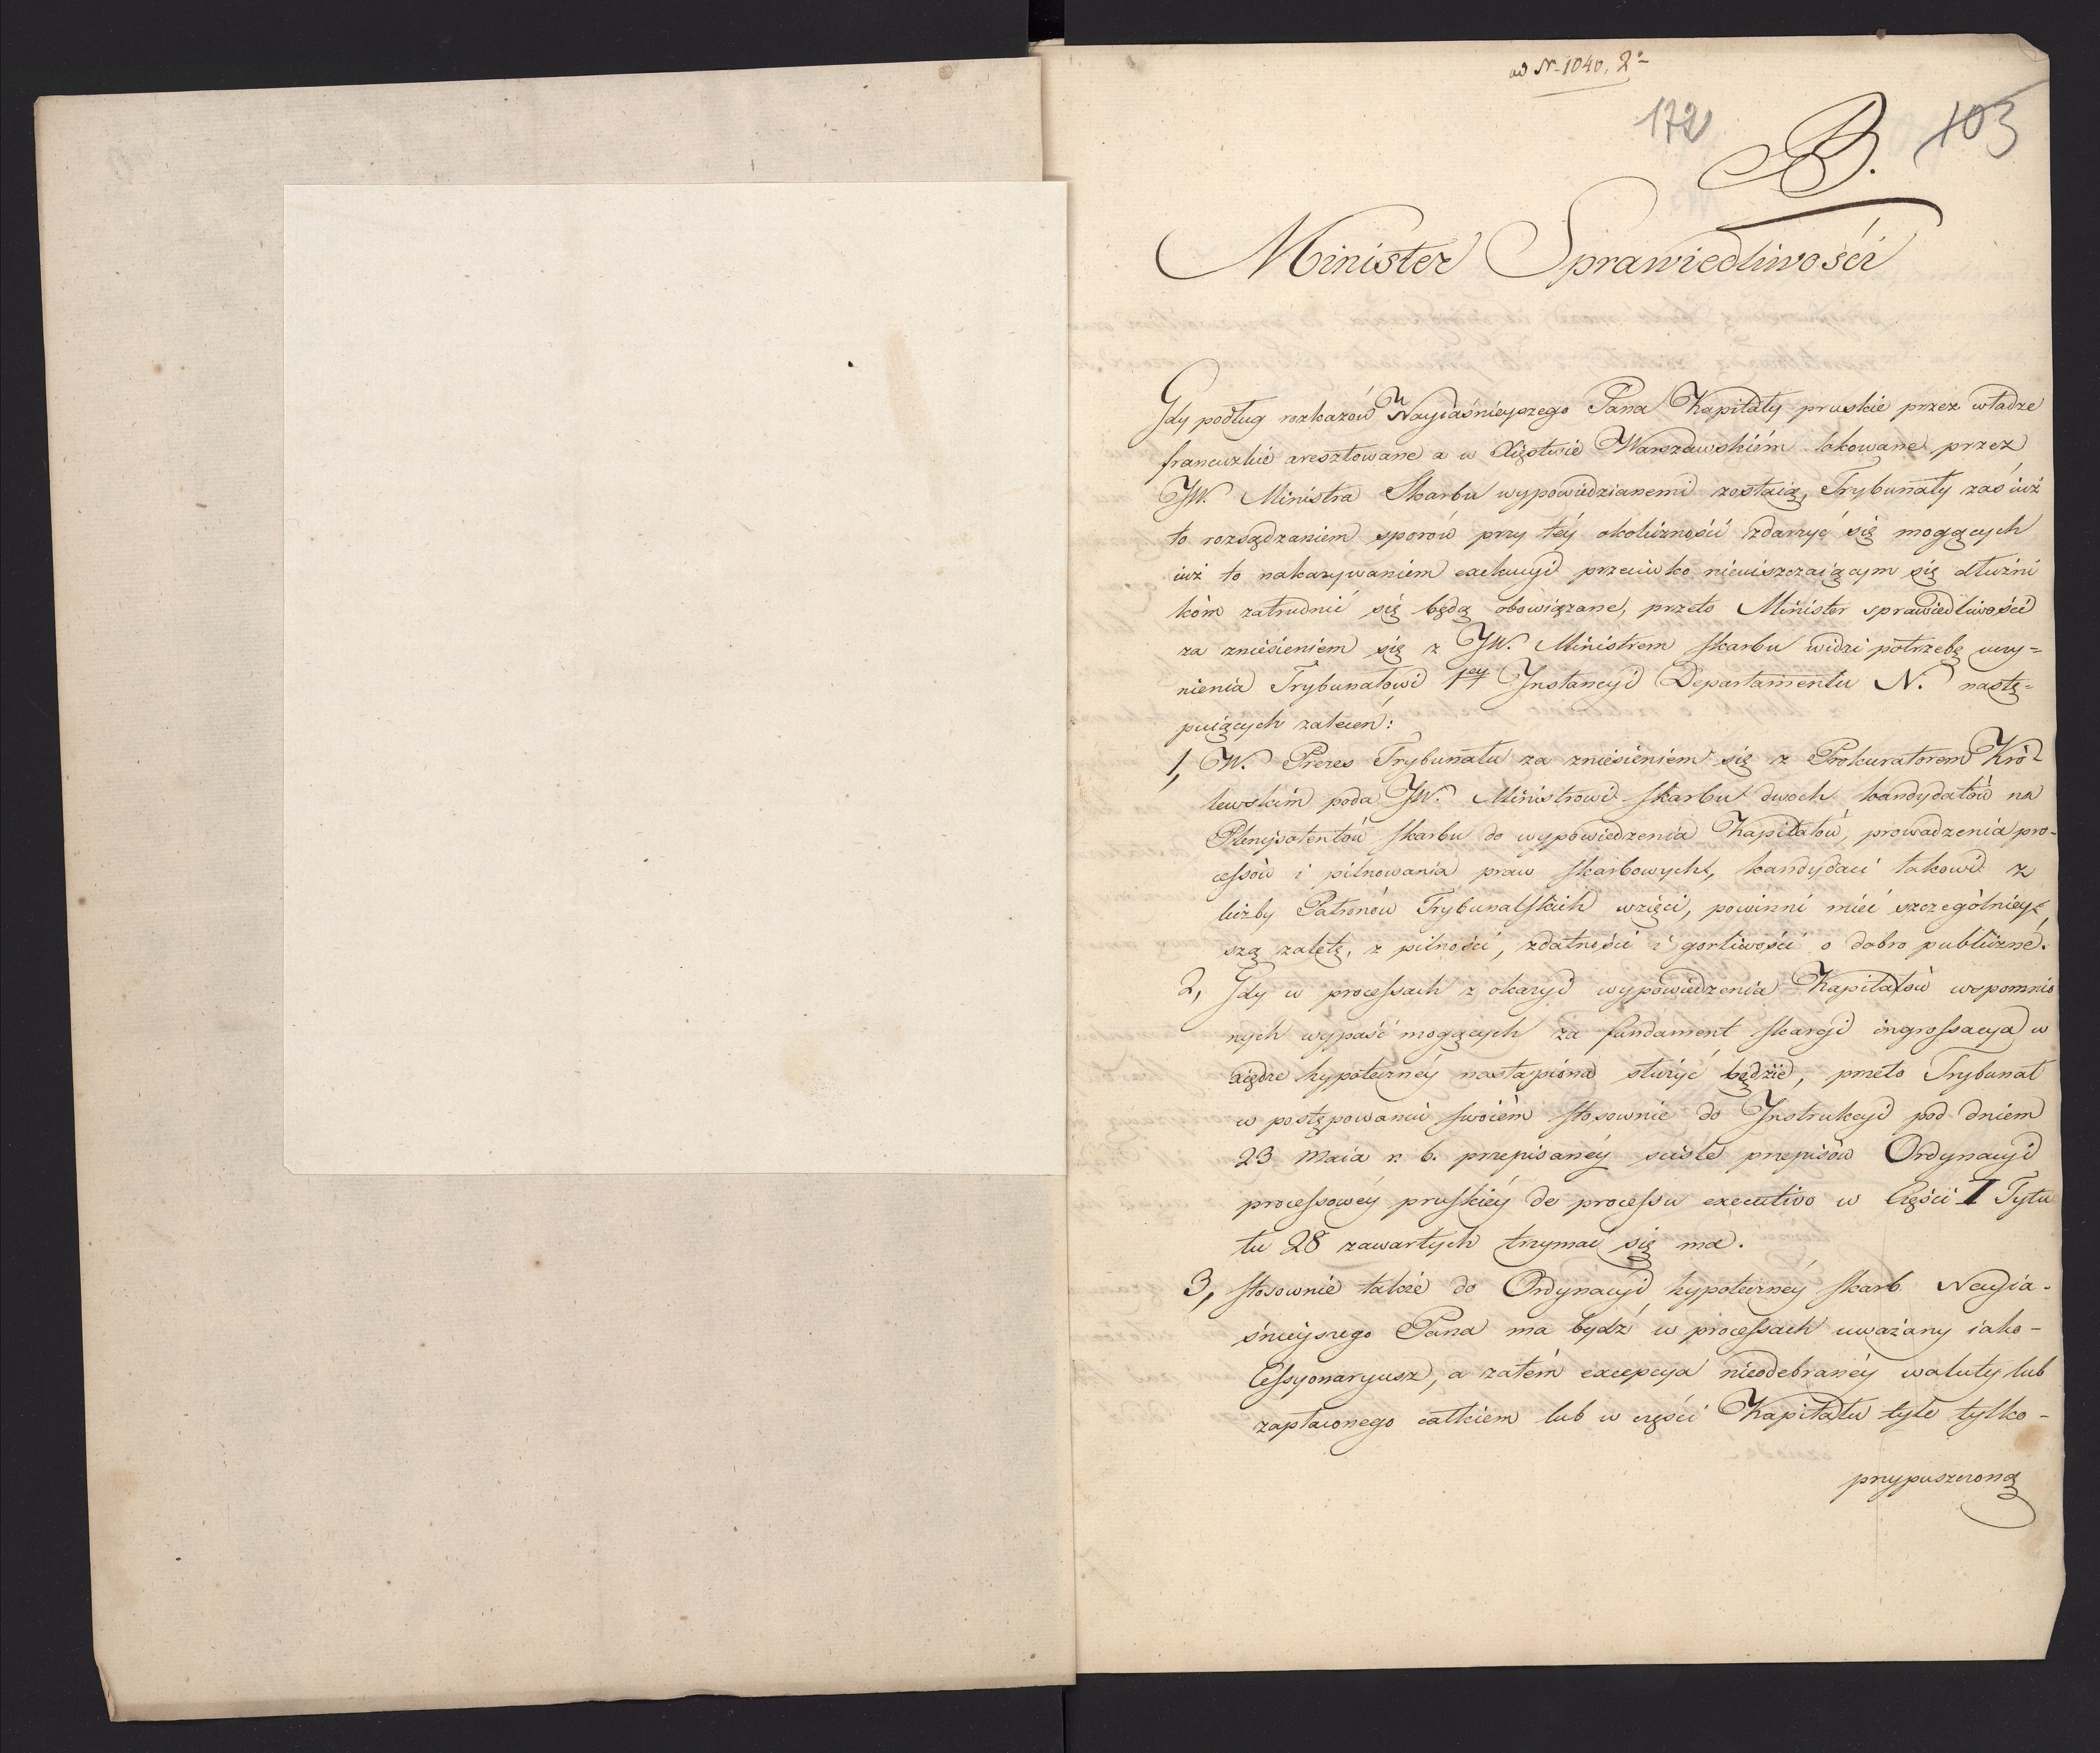 ad Nr 1040. 2o
172
B. 103
Minister Sprawiedliwości
Gdy podług rozkazów Nayiaśnieyszego Pana Kapitały pruskie przez władze
francuzkie aresztowane a w Xięstwie Warszawskiém lokowane przez
JW. Ministra Skarbu wypowiedzianemi zostaią, Trybunały zaś iuż
to rozsądzaniem sporów przy téy okoliczności zdarzyć się mogących
iuż to nakazywaniem exekucyi przeciwko nieuiszczaiącym się dłużni
kóm zatrudnić się będą obowiązane, przeto Minister sprawiedliwości
za zniesieniem się z JW. Ministrem skarbu widzi potrzebę uczy=
nienia Trybunałowi 1ey Instancyi Departamentu N. nastę=
puiących zaleceń:
1, W. Prezes Trybunału za zniesieniem się z Prokuratorem Kró-
lewskim poda JW. Ministrowi Skarbu dwoch kandydatów na
Plenipotentów skarbu do wypowiedzenia Kapitałów, prowadzenia pro-
cessów i pilnowania praw skarbowych, kandydaci takowi z
liczby Patronów Trybunalskich wzięci, powinni mieć szczególniey-
szą zaletę, z pilności, zdatności i gorliwości o dobro publiczné.
2, Gdy w processach z okazyi wypowiedzenia Kapitałów wspomnio
nych wypaść mogących za fundament skargi ingrossacya w
xiędze hypoteczney nastąpiona służyć będzie, przeto Trybunał
w postępowaniu swoiém stosownie do Instrukcyi pod dniem
23 Maia r. b. przepisanéy ściśle przepisów Ordynacyi
processowéy pruskiéy de processu executivo w Części I Tytu
łu 28 zawartych trzymać się ma.
3, Stosownie także do Ordynacyi hypotecznéy skarb Nayia-
śnieyszego Pana ma bydź w processach uważany iako-
Cessyonaryusz, a zatém excepcya nieodebranéy waluty lub
zapłaconego całkiem lub w części Kapitału tyle tylko-
przypuszczoną